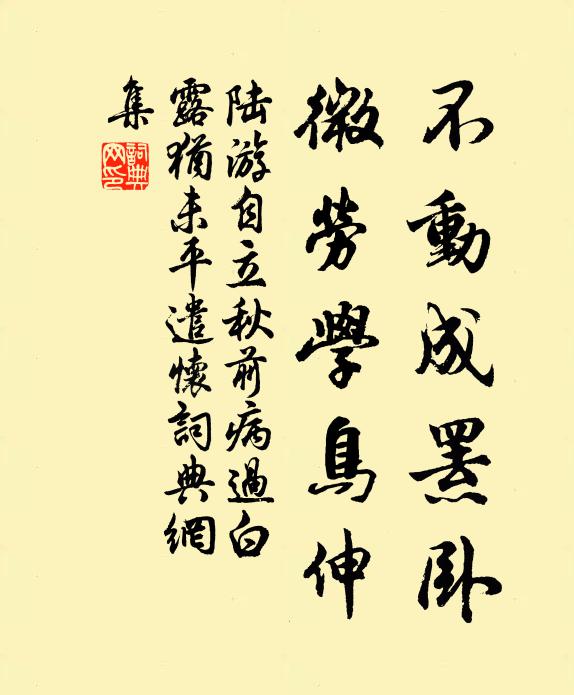 不動成罴臥
微勞學鳥伸
陸游自立秋前病過白
露猶未平遣懷詞典網
集
詞典
网印